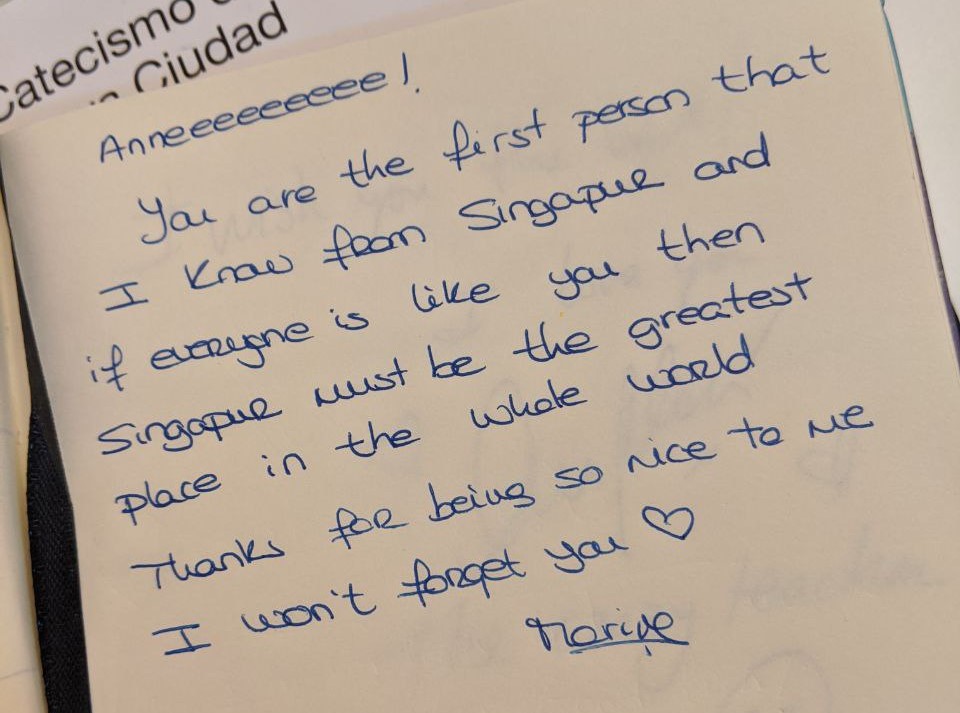 Catecismo
Ciudad
Anneeeeeeeee!
You are the first person that
I know from Singapur and
if everyone is like you then
Singapur must be the greatest
place in the whole world
Thanks for being so nice to me
I won't forget you ♡
Maripe